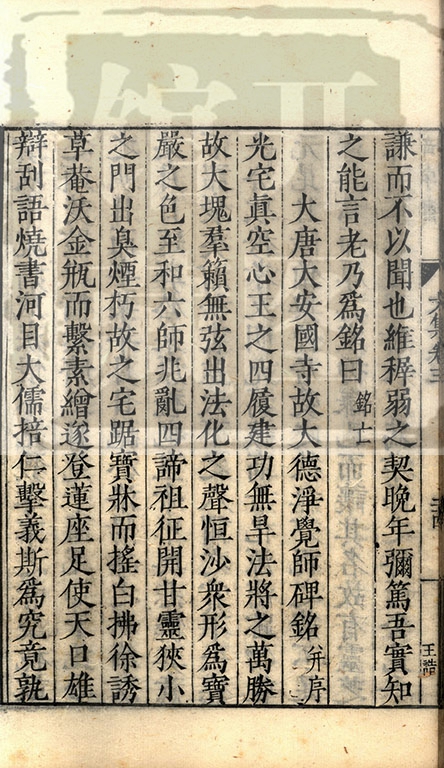 謙而不以聞也維稺弱之契晚年彌篤吾實知
之能言老乃爲銘曰 銘亡
大唐大安國寺故大德淨覺師碑銘 幷序
光宅眞空心王之四履建功無旱法將之萬勝
故大塊羣籟無弦出法化之聲恒沙衆形爲寶
嚴之色至和六師兆亂四諦祖征開甘靈狹小
之門出臭煙朽故之宅踞寶牀而搖白拂徐誘
草菴沃金瓶而繫素繒遂登蓮座足使天口雄
辯刮語燒書河目大儒掊仁擊義斯爲究竟孰
王誥